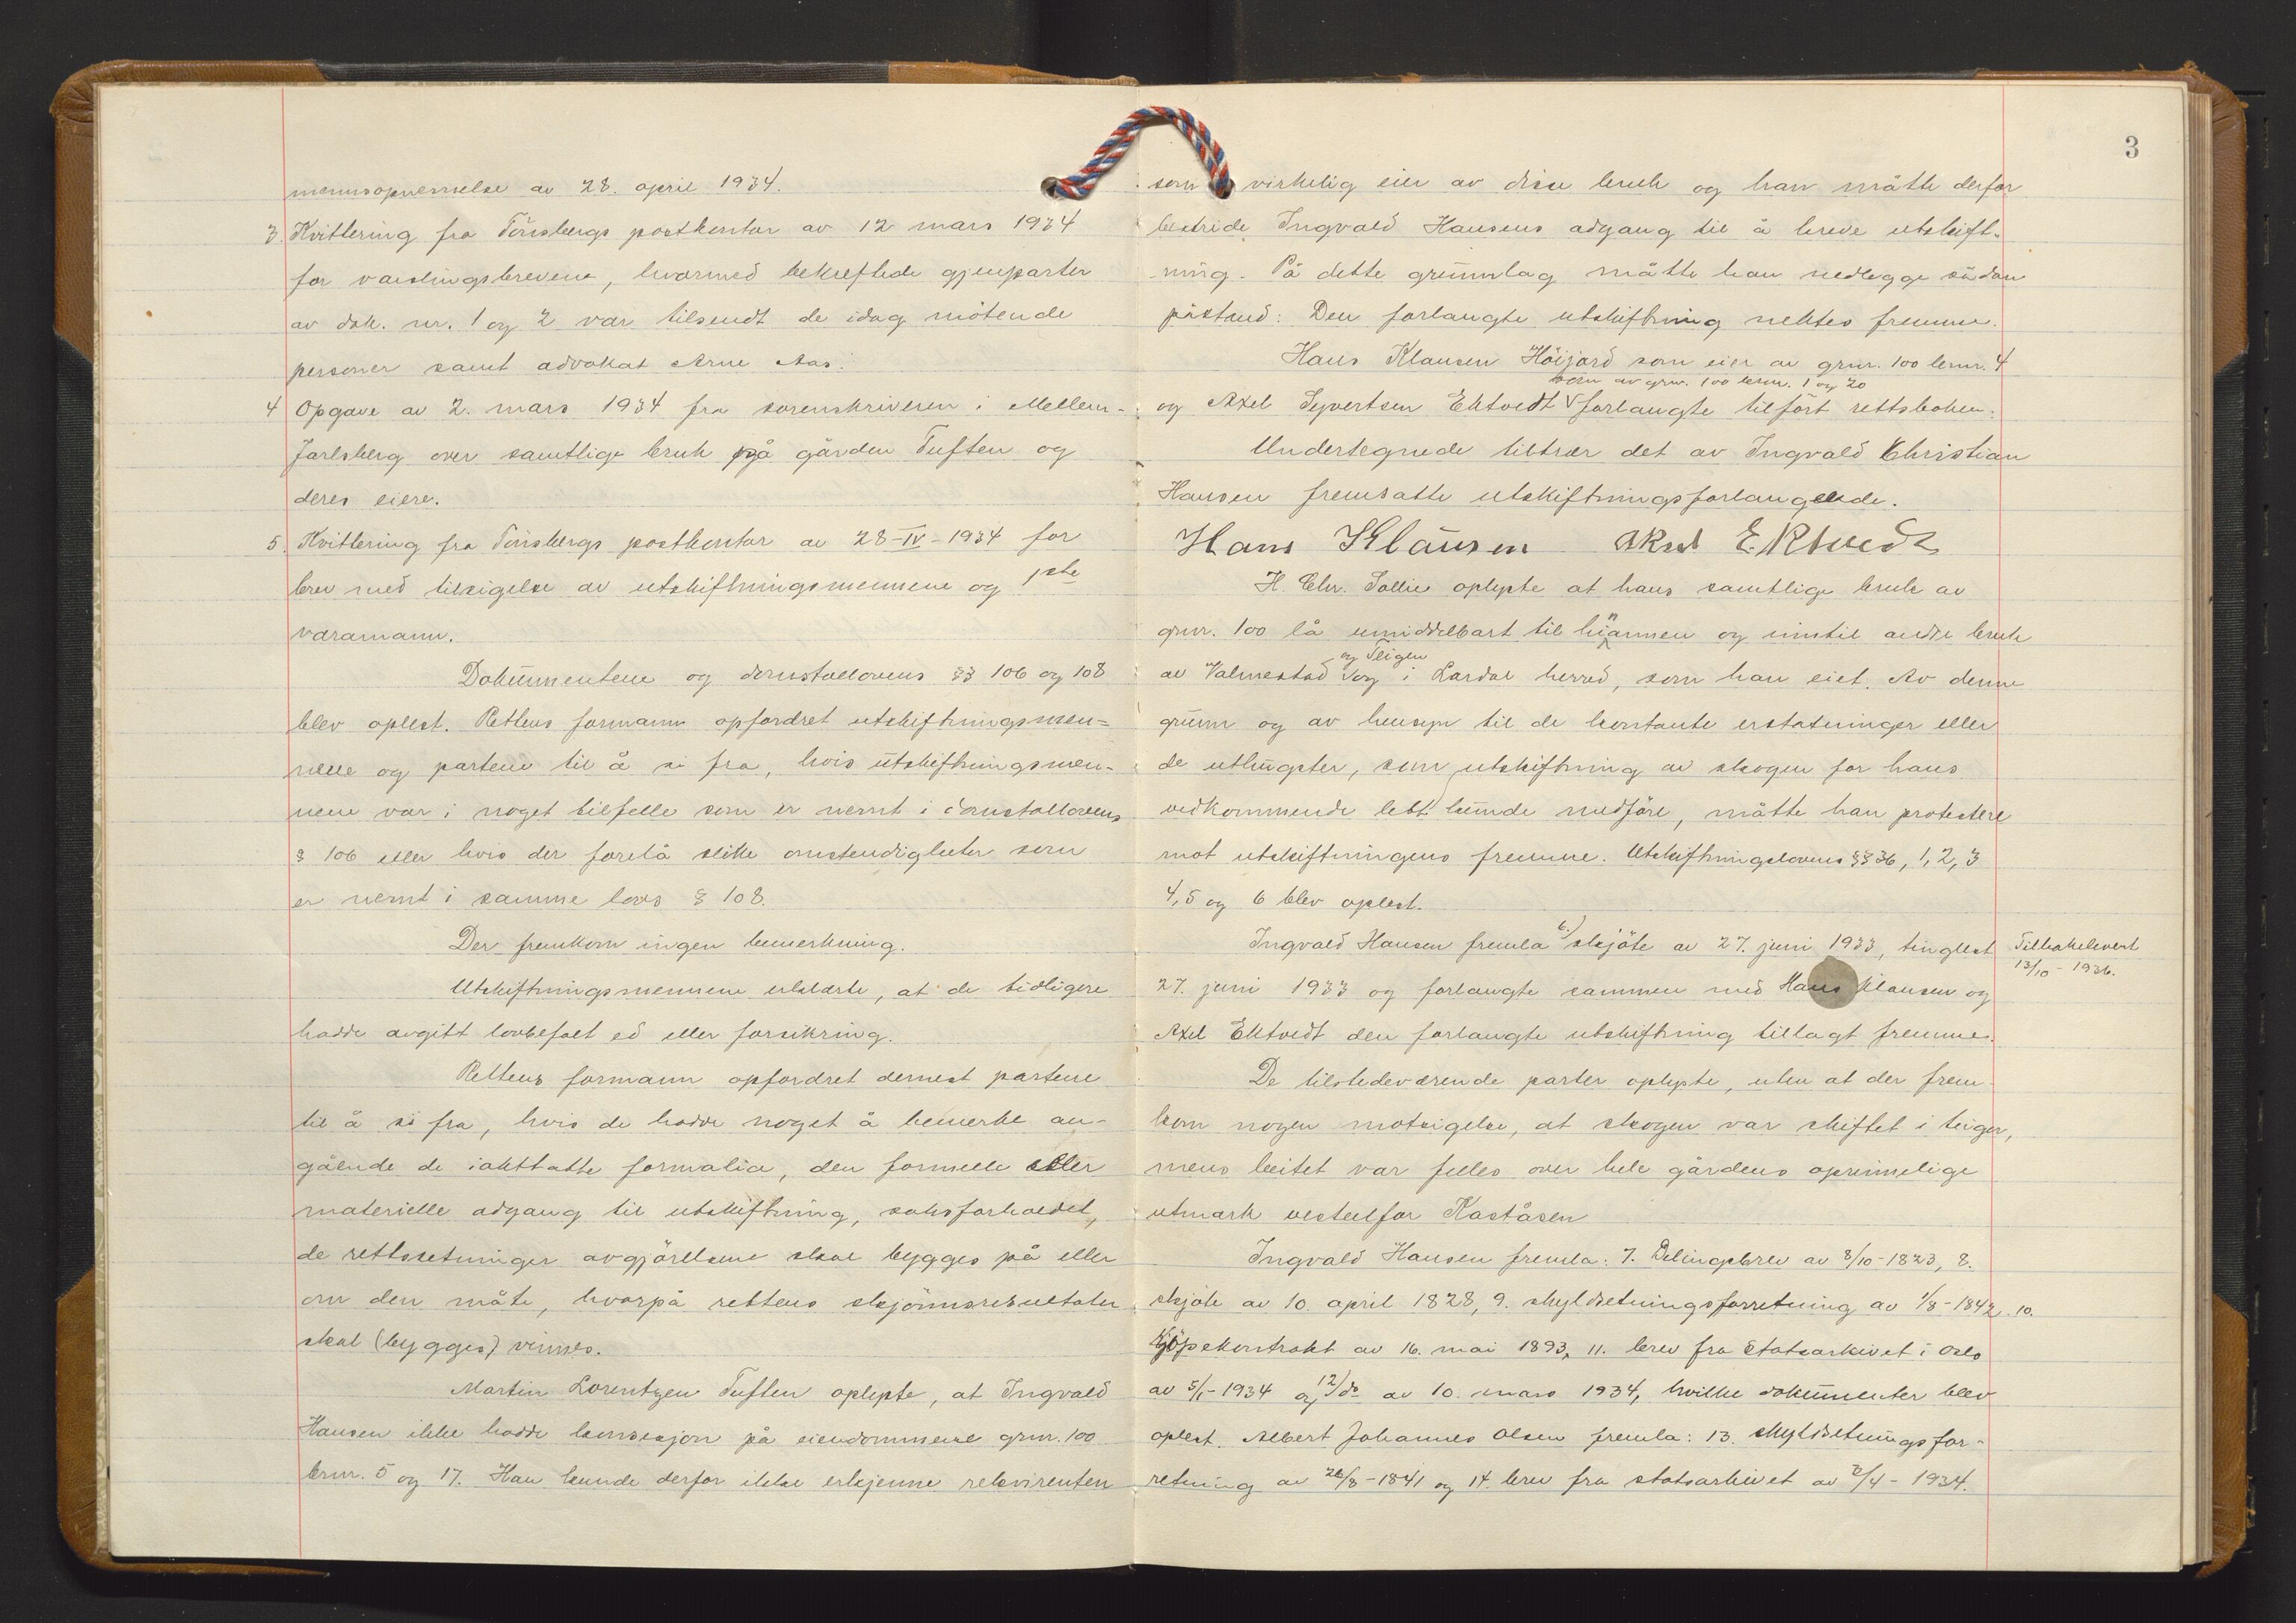 mennsopnevnelse av 28. april 1934.
3. Kvittering fra Tönsbergs postkontor av 12 mars 1934
for varslingsbrevene, hvormed bekreftede gjenparter
av dok. nr. 1 og 2 var tilsendt de idag mötende
personer samt advokat Arne Aas.
4 Opgave av 2. mars 1934 fra sorenskriveren i Mellem-
Jarlsberg over samtlige bruk på gården Tuften og
deres eiere.
5. Kvittering fra Tönsbergs postkontor av 28-IV-1934 for
brev med tilsigelse av utskiftningsmennene og 1ste
varamann.
Dokumentene og domstollovens §§ 106 og 108
blev oplest. Rettens formann opfordret utskiftningsmen=
nene og partene til å si fra, hvis utskiftningsmen-
nene var i noget tilfelle som er nevnt i domstollovens
§ 106 eller hvis der forelå slike omstendigheter som
er nevnt i samme lovs § 108.
Der fremkom ingen bemerkning.
Utskiftningsmennene erklærte, at de tidligere
hadde avgitt lovbefalt ed eller forsikring.
Rettens formann opfordret dernest partene
til å si fra, hvis de hadde noget å bemerke an-
gående de iakttatte formalia, den formelle eller
materielle adgang til utskiftning, saksforholdet,
de rettssetninger avgjörelsene skal bygges på eller
om den måte, hvorpå rettens skjönnsresultater
skal (bygges) vinnes.
Martin Lorentzen Tuften oplyste, at Ingvald
Hansen ikke hadde konsesjon på eiendommene grnr. 100
brnr. 5 og 17. Han kunde derfor ikke erkjenne rekvirenten
3
som virkelig eier av disse bruk og han måtte derfor
bestride Ingvald Hansens adgang til å kreve utskift-
ning. På dette grunnlag måtte han nedlegge sådan
påstand: Den forlangte utskiftning nektes fremme.
Hans Klausen Höijord som eier av grnr. 100 brnr. 4
som av grnr. 100 brnr. 1 og 20
og Axel Syvertsen Ektvedt forlangte tilfört rettsboken:
Undertegnede tiltrær det av Ingvald Christian
Hansen fremsatte utskiftningsforlangende.
Hans Klausen Aksel Ektvedt
H. Chr. Sollie oplyste at hans samtlige bruk av
grnr. 100 lå umiddelbart til hinannen og inntil andre bruk
og Teigen
av Valmestad og i Lardal herred, som han eiet. Av denne
grunn og av hensyn til de kontante erstatninger eller
de utlugster, som utskiftning av skogen for hans
vedkommende lett kunde medföre, måtte han protestere
mot utskiftningens fremme. Utskiftningslovens §§ 36, 1, 2, 3
4, 5 og 6 blev oplest.
Ingvald Hansen fremla 6) skjöte av 27. juni 1933, tinglest
Tilbakelevert
13/10 - 1936.
27. juni 1933 og forlangte sammen med Hans Klausen og
Axel Ektvedt den forlangte utskiftning tillagt fremme.
De tilstedeværende parter oplyste, uten at der frem-
kom nogen motsigelse, at skogen var skiftet i teiger,
mens beitet var felles over hele gårdens oprinnelige
utmark vestenfor Kaståsen
Ingvald Hansen fremla: 7. Delingsbrev av 8/10-1823, 8.
skjöte av 10. april 1828, 9. skyldsetningsforretning av 1/8-1842. 10.
Kjöpekontrakt av 16. mai 1893, 11. brev fra Statsarkivet i Oslo
av 5/1-1934 og 12) do av 10. mars 1934, hvilke dokumenter blev
oplest. Albert Johannes Olsen fremla: 13. skyldsetningsfor-
retning av 26/8-1841 og 14. brev fra statsarkivet av 3/4-1934.